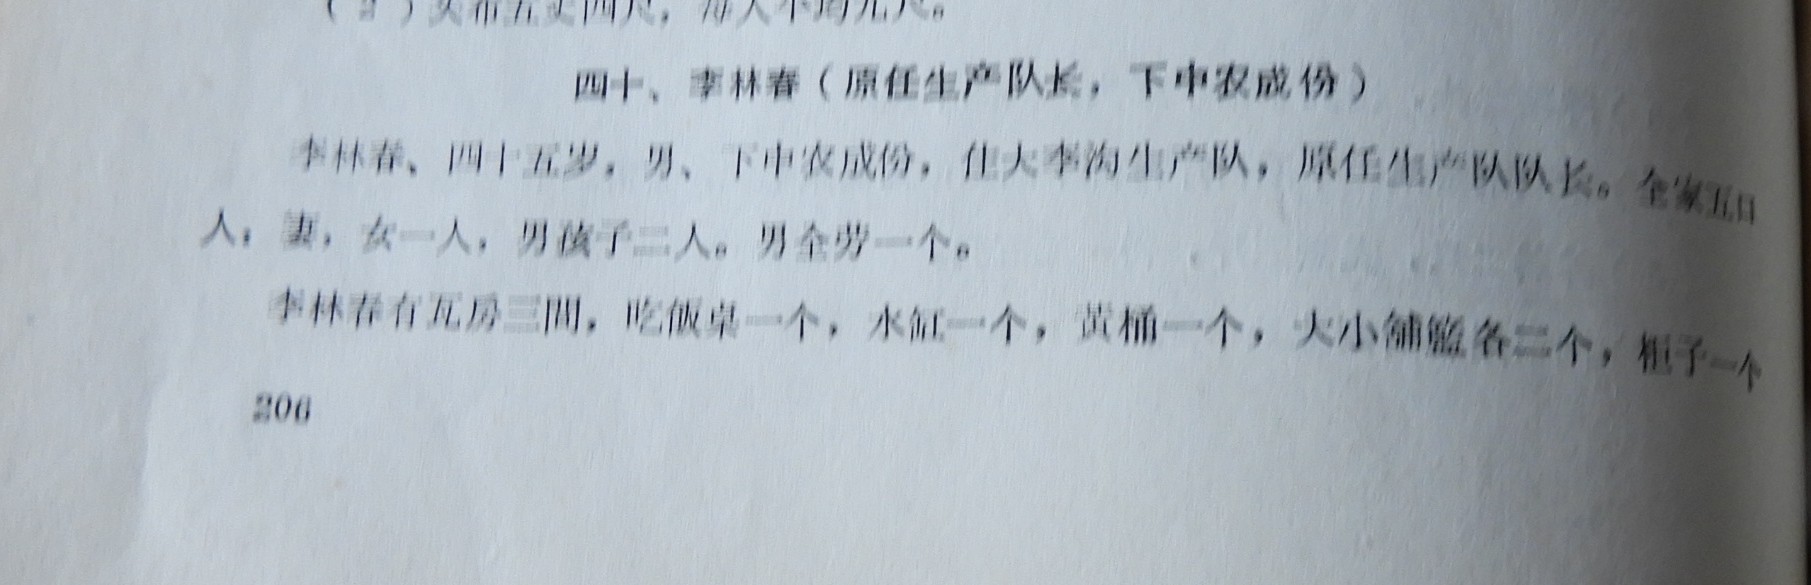 (2)买布五丈四尺，每人平均九尺。
四十、李林春(原任生产队长，下中农成份)
李林春、四十五岁，男、下中农成份，住大李沟生产队，原任生产队队长。全家五口
人，妻，女一人，男孩子二人。男全劳一个。
李林春有瓦房三间，吃饭桌一个，水缸一个，黄桶一个，大小铺篮各二个，柜子一个
206